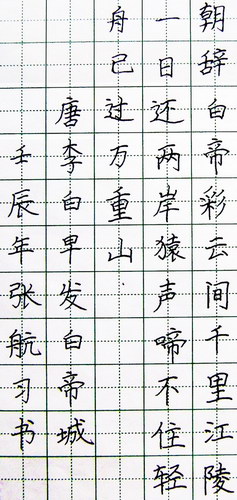 朝辞白帝彩云间千里江陵
一日还两岸猿声啼不住轻
舟已过万重山
唐李白早发白帝城
壬辰年张航习书